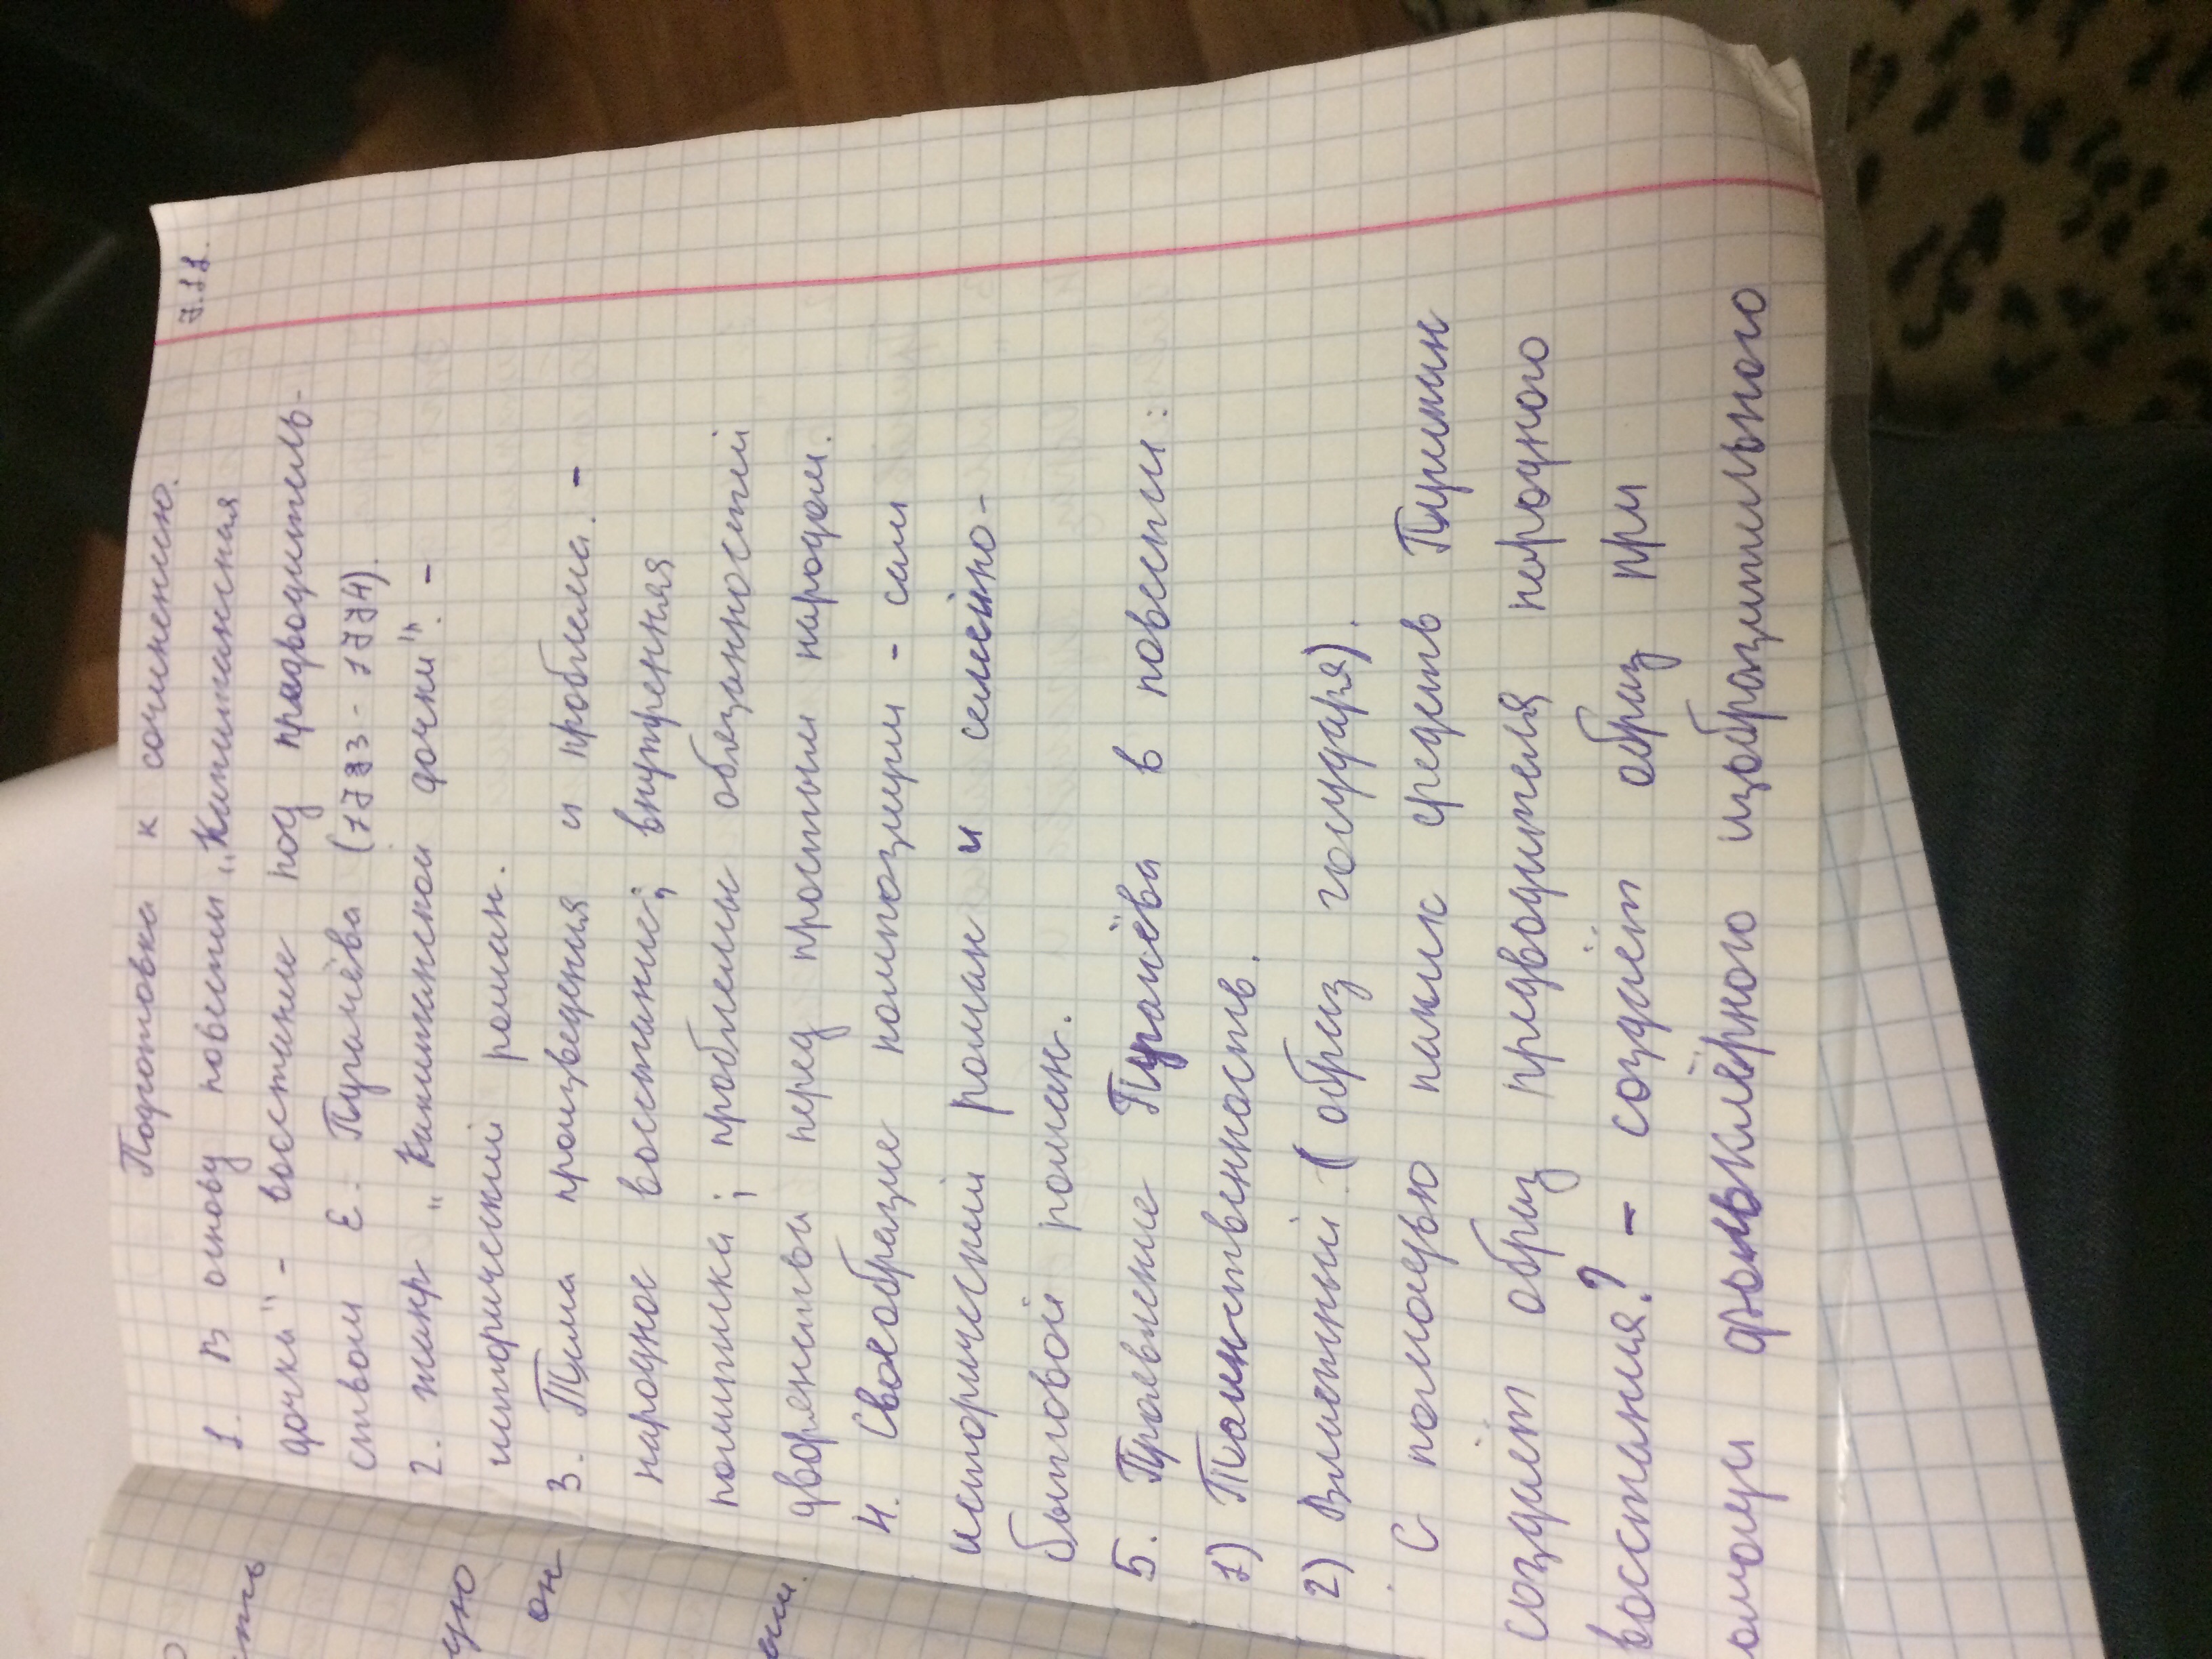 7.11.
Подготовка к сочинению.
1. В основу повести „Капитанская
дочка" - восстание под предводитель-
ством Е. Пугачёва (1773-1774).
2. жанр „Капитанской дочки". -
исторический роман.
3. Тема произведения и проблема. -
народное восстание; внутренняя
политика; проблемы обязанностей
дворянства перед простым народом.
4. Своеобразие композиции - сам
исторический роман и семейно-
бытовой роман.
5. Проявление Пугачёва в повести:
1) Таинственность.
2) Властный (образ государя).
С помощью каких средств Пушкин
создаёт образ предводителя народного
восстания? - создаёт образ при
помощи фольклёрного изобразительного
ить
ую
он
ами.